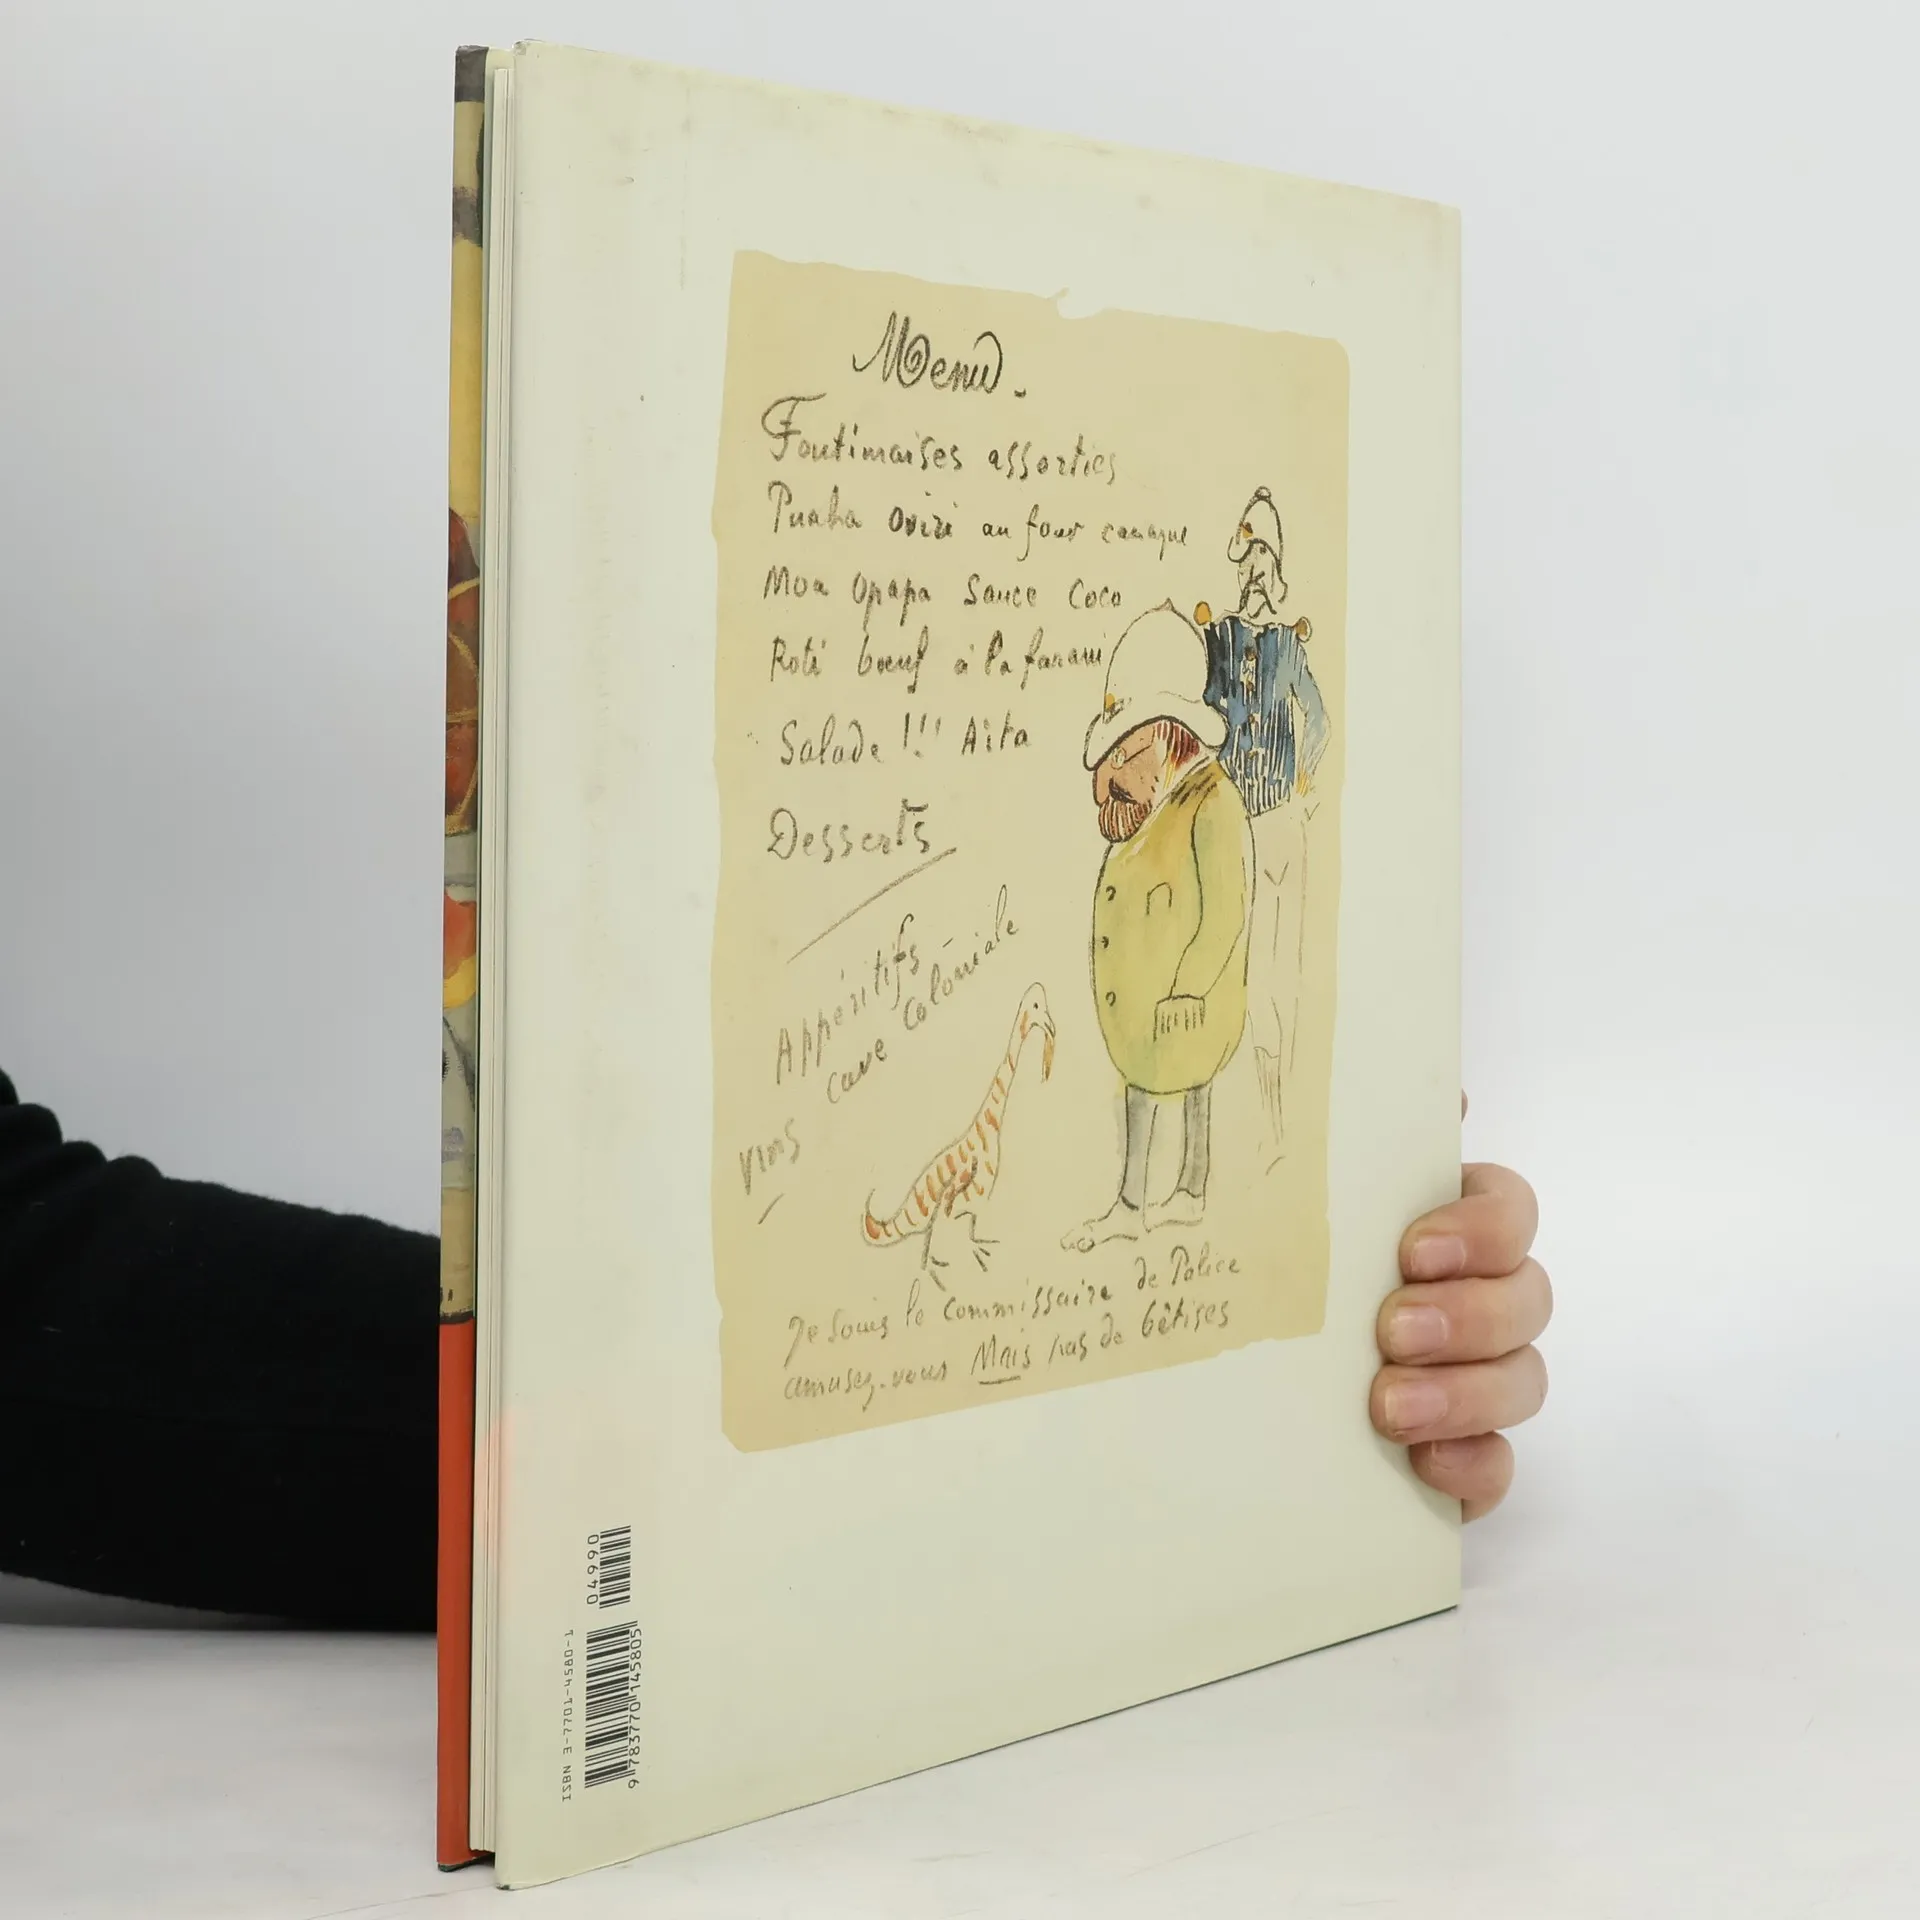 Menu.
Foutimaises assorties
Puaha Oviri au four canaque
Moa Opapa Sauce Coco
Roti bœuf à la farani
Salade !!! Aita
Desserts
Appéritifs
vins cave Coloniale
Je Souis le Commissaire de Police
amusez-vous Mais pas de bêtises
04990
ISBN 3-7701-4580-1
9 783770 145805